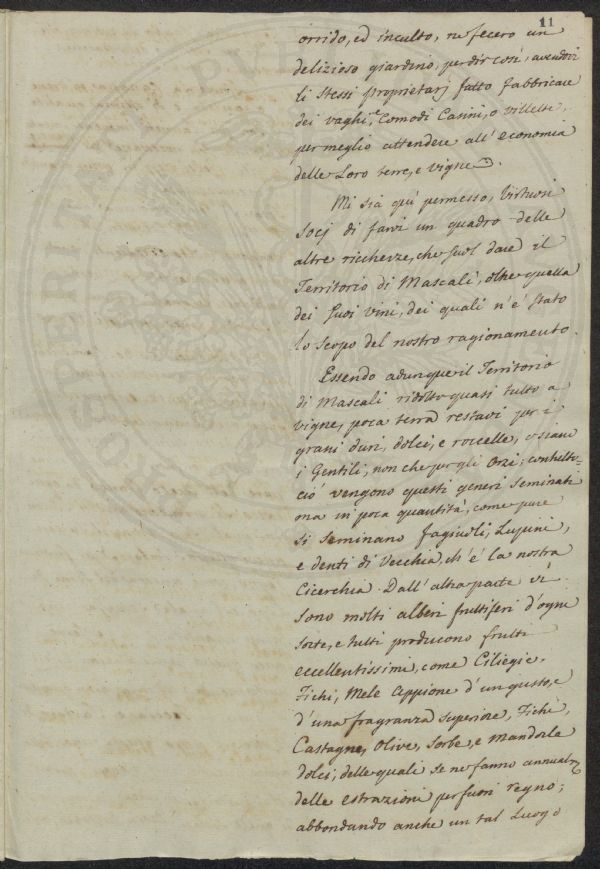 11
orrido, ed inculto, ne fecero un
delizioso giardino, per dir così, avendovi
li stessi proprietarj fatto fabbricare
dei vaghi, e Comodi Casini, o villette,
per meglio attendere all'economia
delle Loro terre, e vigne.
Mi sia quì permesso, Virtuosi
Socj di farvi un quadro delle
altre ricchezze, che suol dare il
Territorio di Mascali, oltre quella
dei suoi vini, dei quali n'è stato
lo scopo del nostro ragionamento.
Essendo adunque il Territorio
di Mascali ridotto quasi tutto a
vigne, poca terra restavi per i
grani duri, dolci, e roccelle, ossiano
i Gentili, non che per gli Orzi; contutto
ciò vengono questi generi seminati
ma in poca quantità, come pure
si seminano fagiuoli, Lupini,
e denti di Vecchia, ch'è la nostra
Cicerchia. Dall'altra parte vi
sono molti alberi fruttiferi d'ogni
sorte, e tutti producono frutti
eccellentissimi, come Ciliegie,
Fichi, Mele Appione d'un gusto, e
d'una fragranza superiore, Fichi,
Castagne, Olive, Sorbe, e Mandorle
dolci, delle quali se ne fanno annualm.e
delle estrazioni per fuori regno;
abbondando anche un tal Luogo